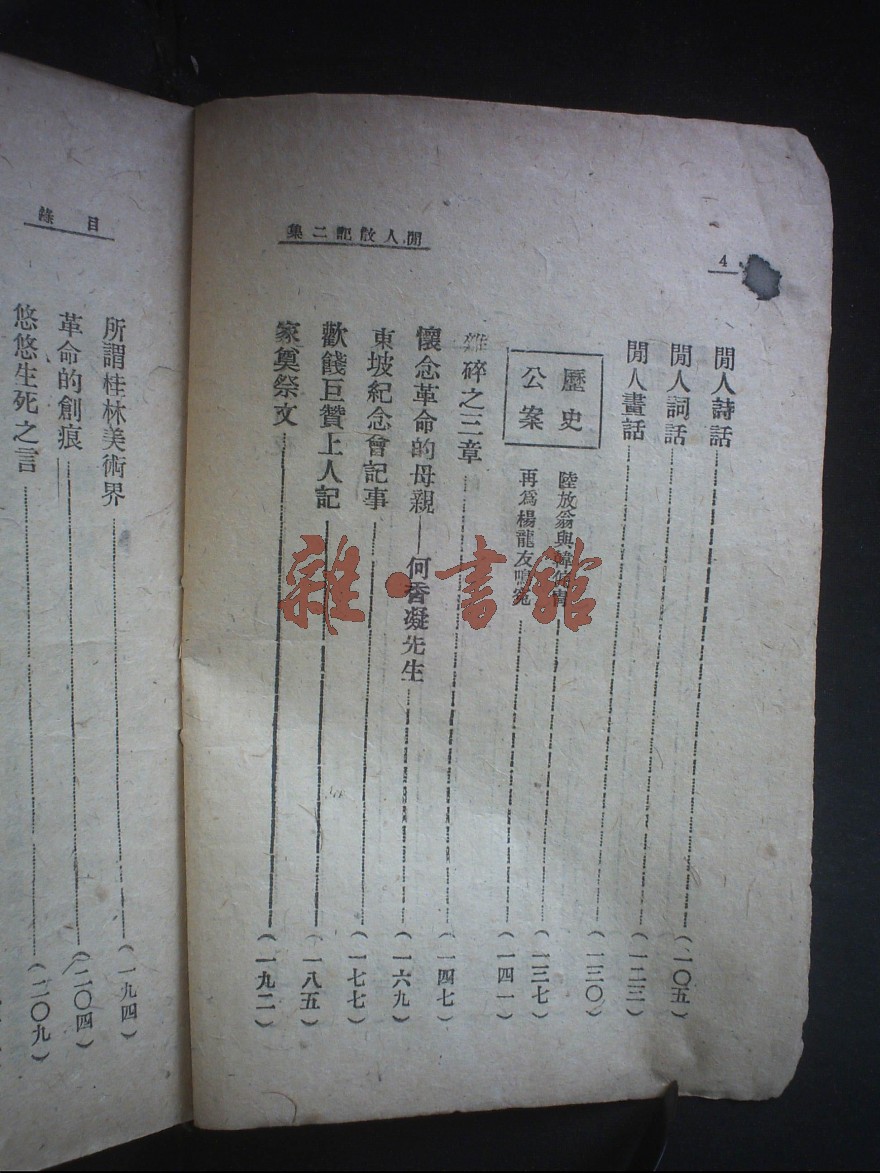 4
閒人散記二集
閒人詩話(一〇五)
閒人詞話(一二三)
閒人畫話(一三〇)
歷史
公案
陸放翁與韓侂胄(一三七)
再爲楊龍友鳴冤(一四一)
雜碎之三章(一四七)
懷念革命的母親——何香凝先生(一六九)
東坡紀念會記事(一七七)
歡餞巨贊上人記(一八五)
家奠祭文(一九二)
目錄
所謂桂林美術界(一九四)
革命的創痕(二〇四)
悠悠生死之言(二〇九)
雜·書館